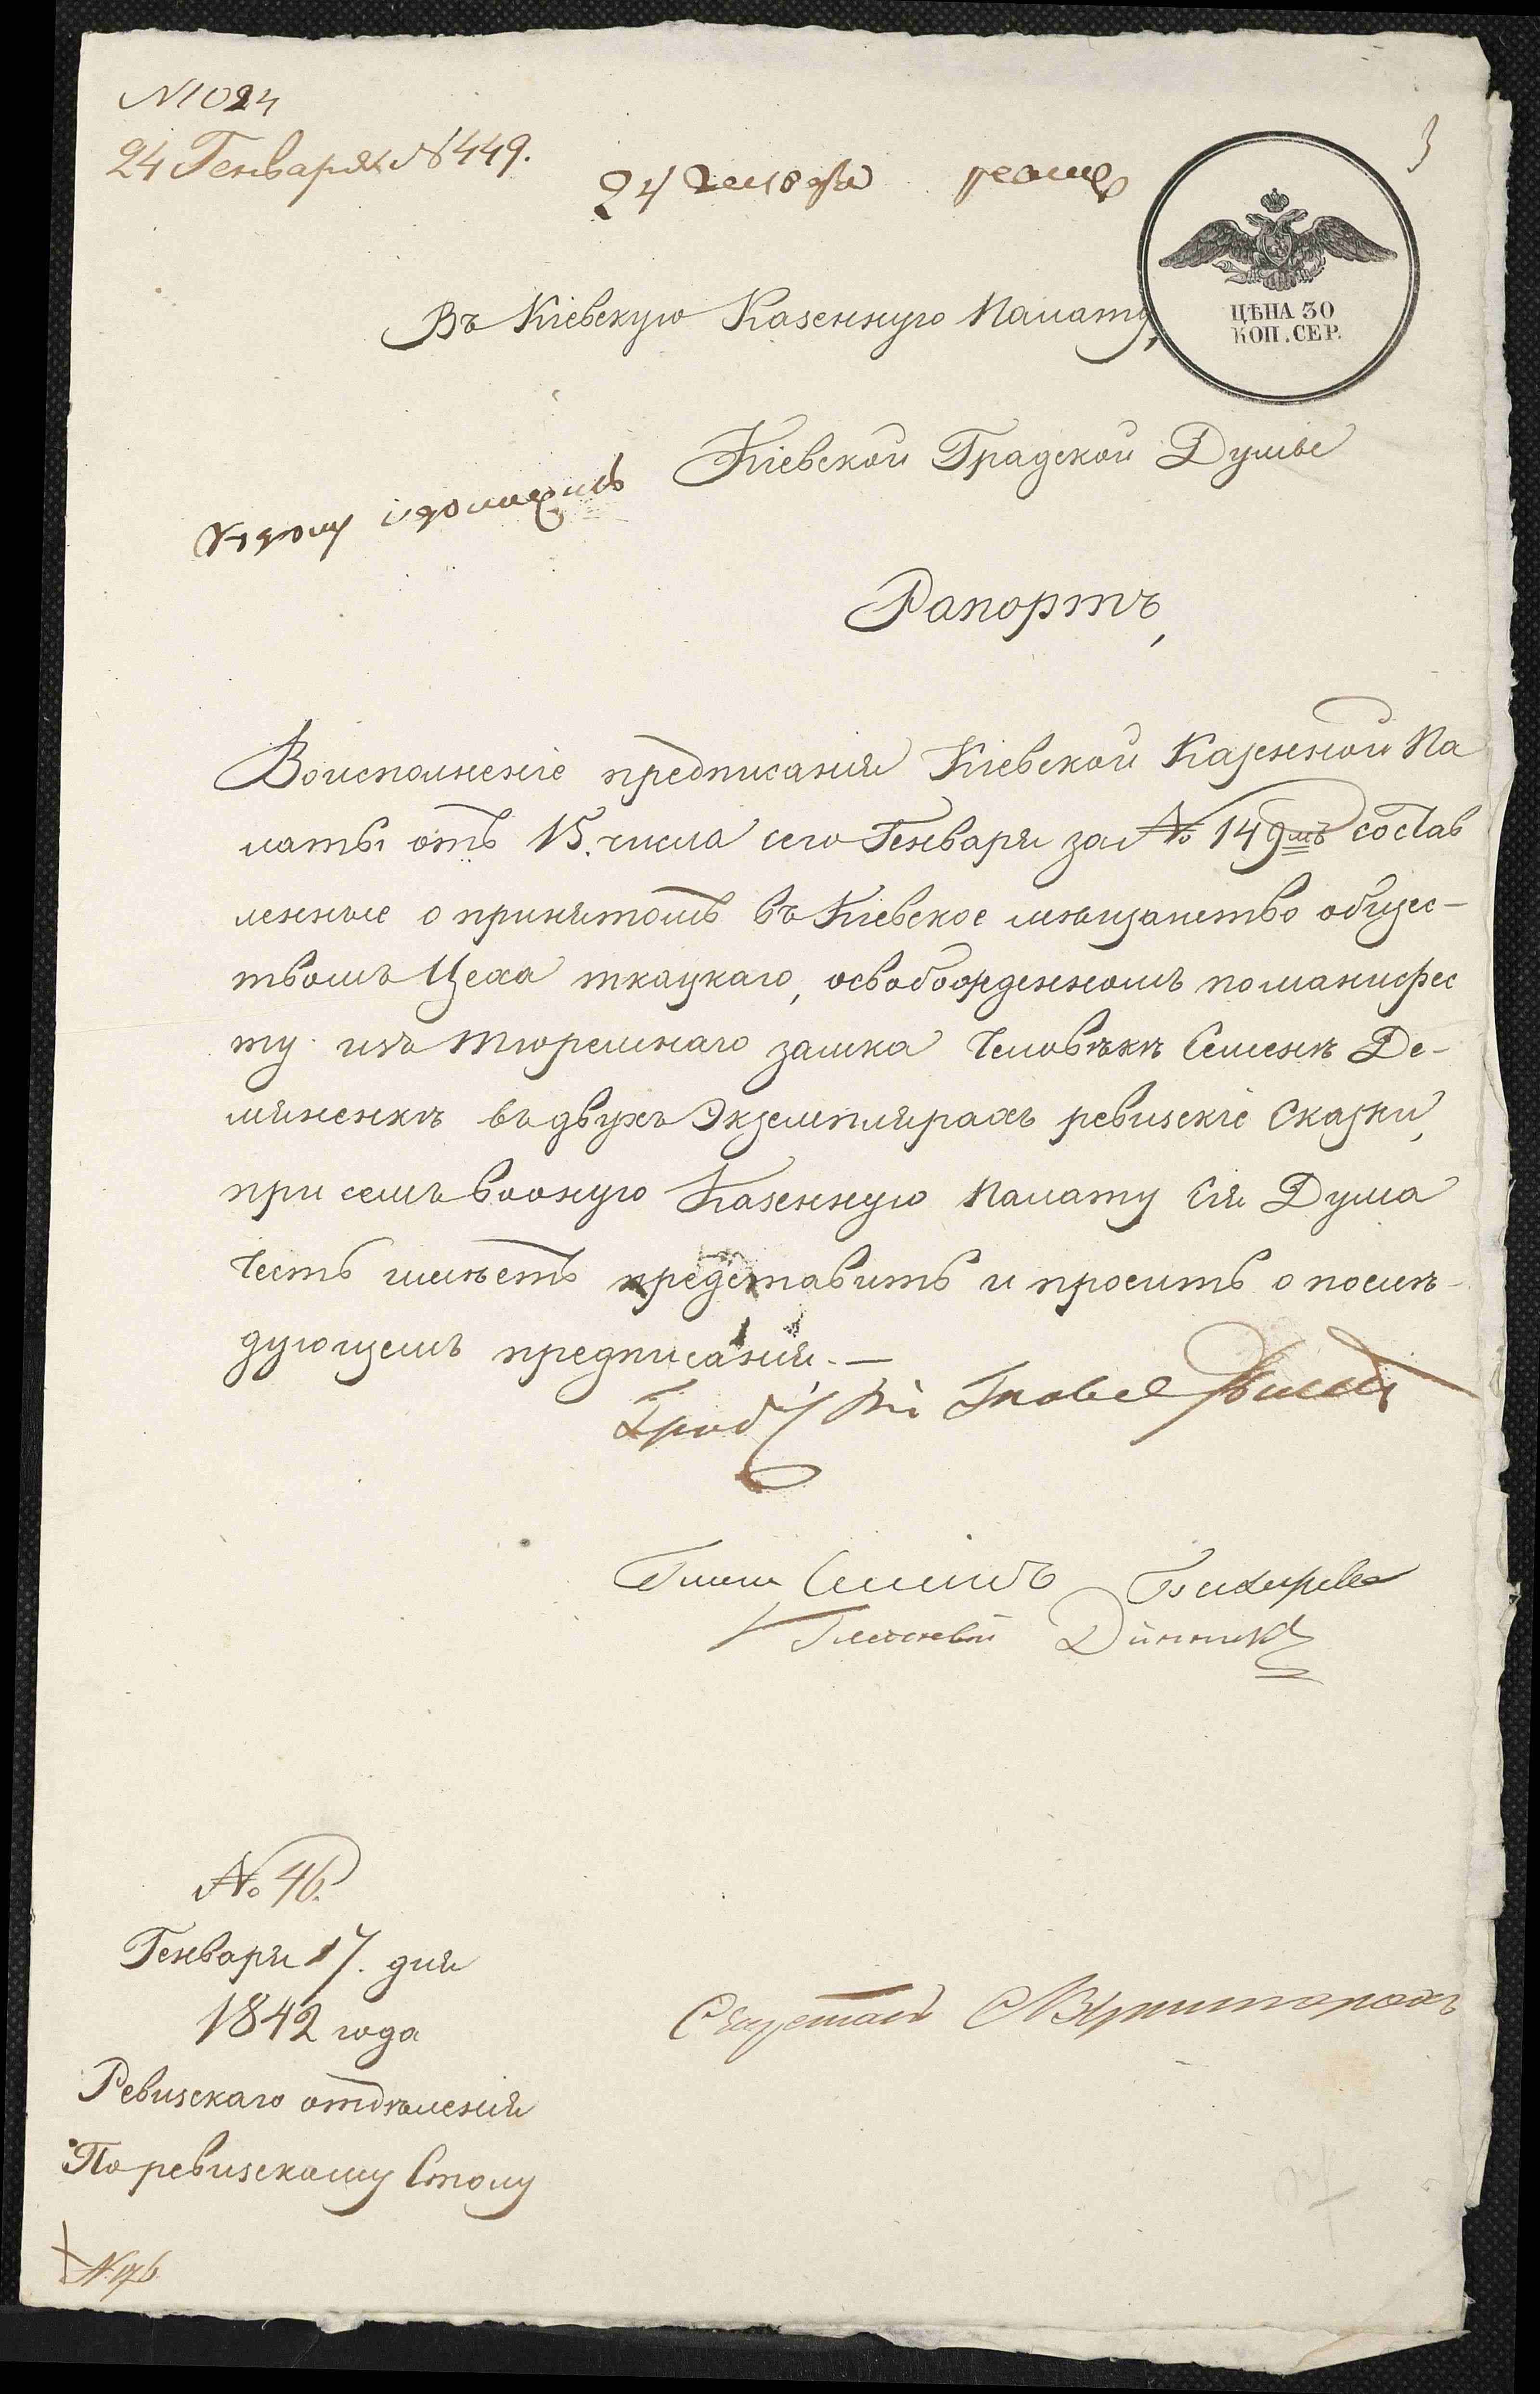 № 1024
24 Генваря № 449.
3
24 Генваря
ЦѢНА 30
КОП. СЕР.
Въ Кіевскую Казенную Палату,
Кіевской Градской Думы
Рапортъ,
Воисполненіе предписанія Кіевской Казенной Па
латы отъ 15. числа сего Генваря за № 149мъ состав
ленные о принятомъ въ Кіевское мѣщанство общес-
твомъ Цеха ткацкаго, освобожденномъ поманифес
ту изъ тюремнаго замка Человѣкѣ Семенѣ Де-
мяненкѣ въ двухъ Экземплярахъ ревизскіе Сказки,
при семъ вооную Казенную Палату Сія Дума
Честь имѣетъ представить и просить о послѣ-
дующемъ предписанія. —
Семенъ
Гласный Динникъ
№ 46.
Генваря 17. дня
1842 года
Секретарь
Ревизскаго отдѣленія
По ревизскому Столу